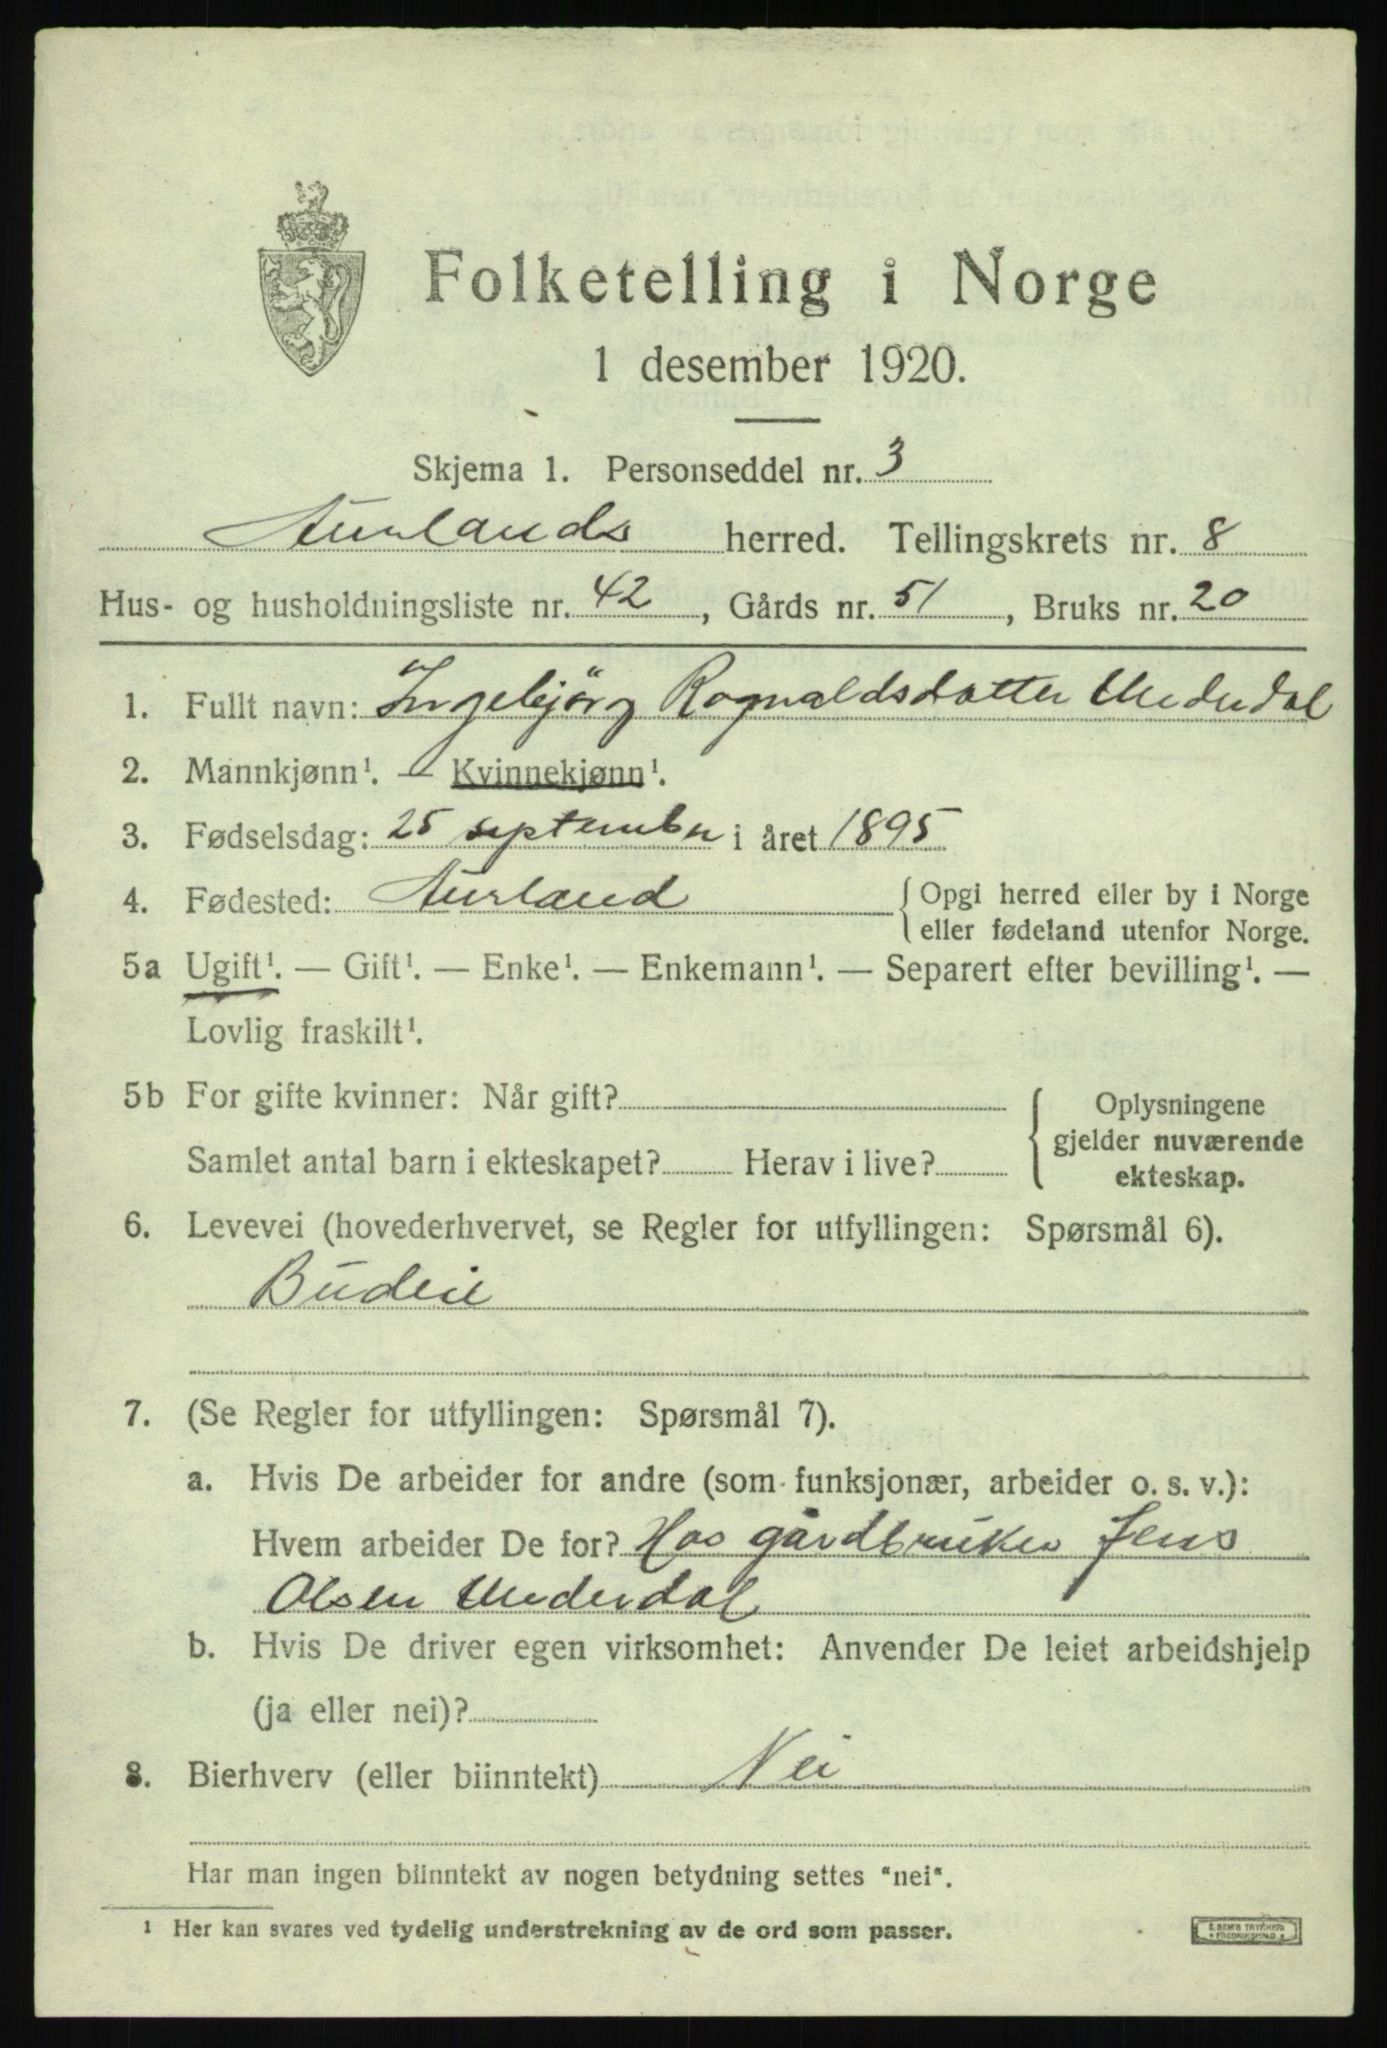 Folketelling i Norge
1 desember 1920.
Skjema 1. Personseddel nr. 3
Aurlands herred. Tellingskrets nr. 8
Hus- og husholdningsliste nr. 42, Gårds nr. 51, Bruks nr. 20
1. Fullt navn: Ingebjörg Rognvaldsdatter Underdal
2. Mannkjønn¹. — Kvinnekjønn¹.
3. Fødselsdag: 25 september i året 1895
4. Fødested: Aurland { Opgi herred eller by i Norge
eller fødeland utenfor Norge.
5a Ugift¹. — Gift¹. — Enke¹. — Enkemann¹. — Separert efter bevilling¹. —
Lovlig fraskilt¹.
5b For gifte kvinner: Når gift? { Oplysningene
gjelder nuværende
Samlet antal barn i ekteskapet? Herav i live? ekteskap.
6. Levevei (hovederhvervet, se Regler for utfyllingen: Spørsmål 6).
Budeie
7. (Se Regler for utfyllingen: Spørsmål 7).
a. Hvis De arbeider for andre (som funksjonær, arbeider o. s. v.):
Hvem arbeider De for? Hos gårdbruker Jens
Olsen Underdal
b. Hvis De driver egen virksomhet: Anvender De leiet arbeidshjelp
(ja eller nei)?
8. Bierhverv (eller biinntekt) Nei
Har man ingen biinntekt av nogen betydning settes "nei".
¹ Her kan svares ved tydelig understrekning av de ord som passer.